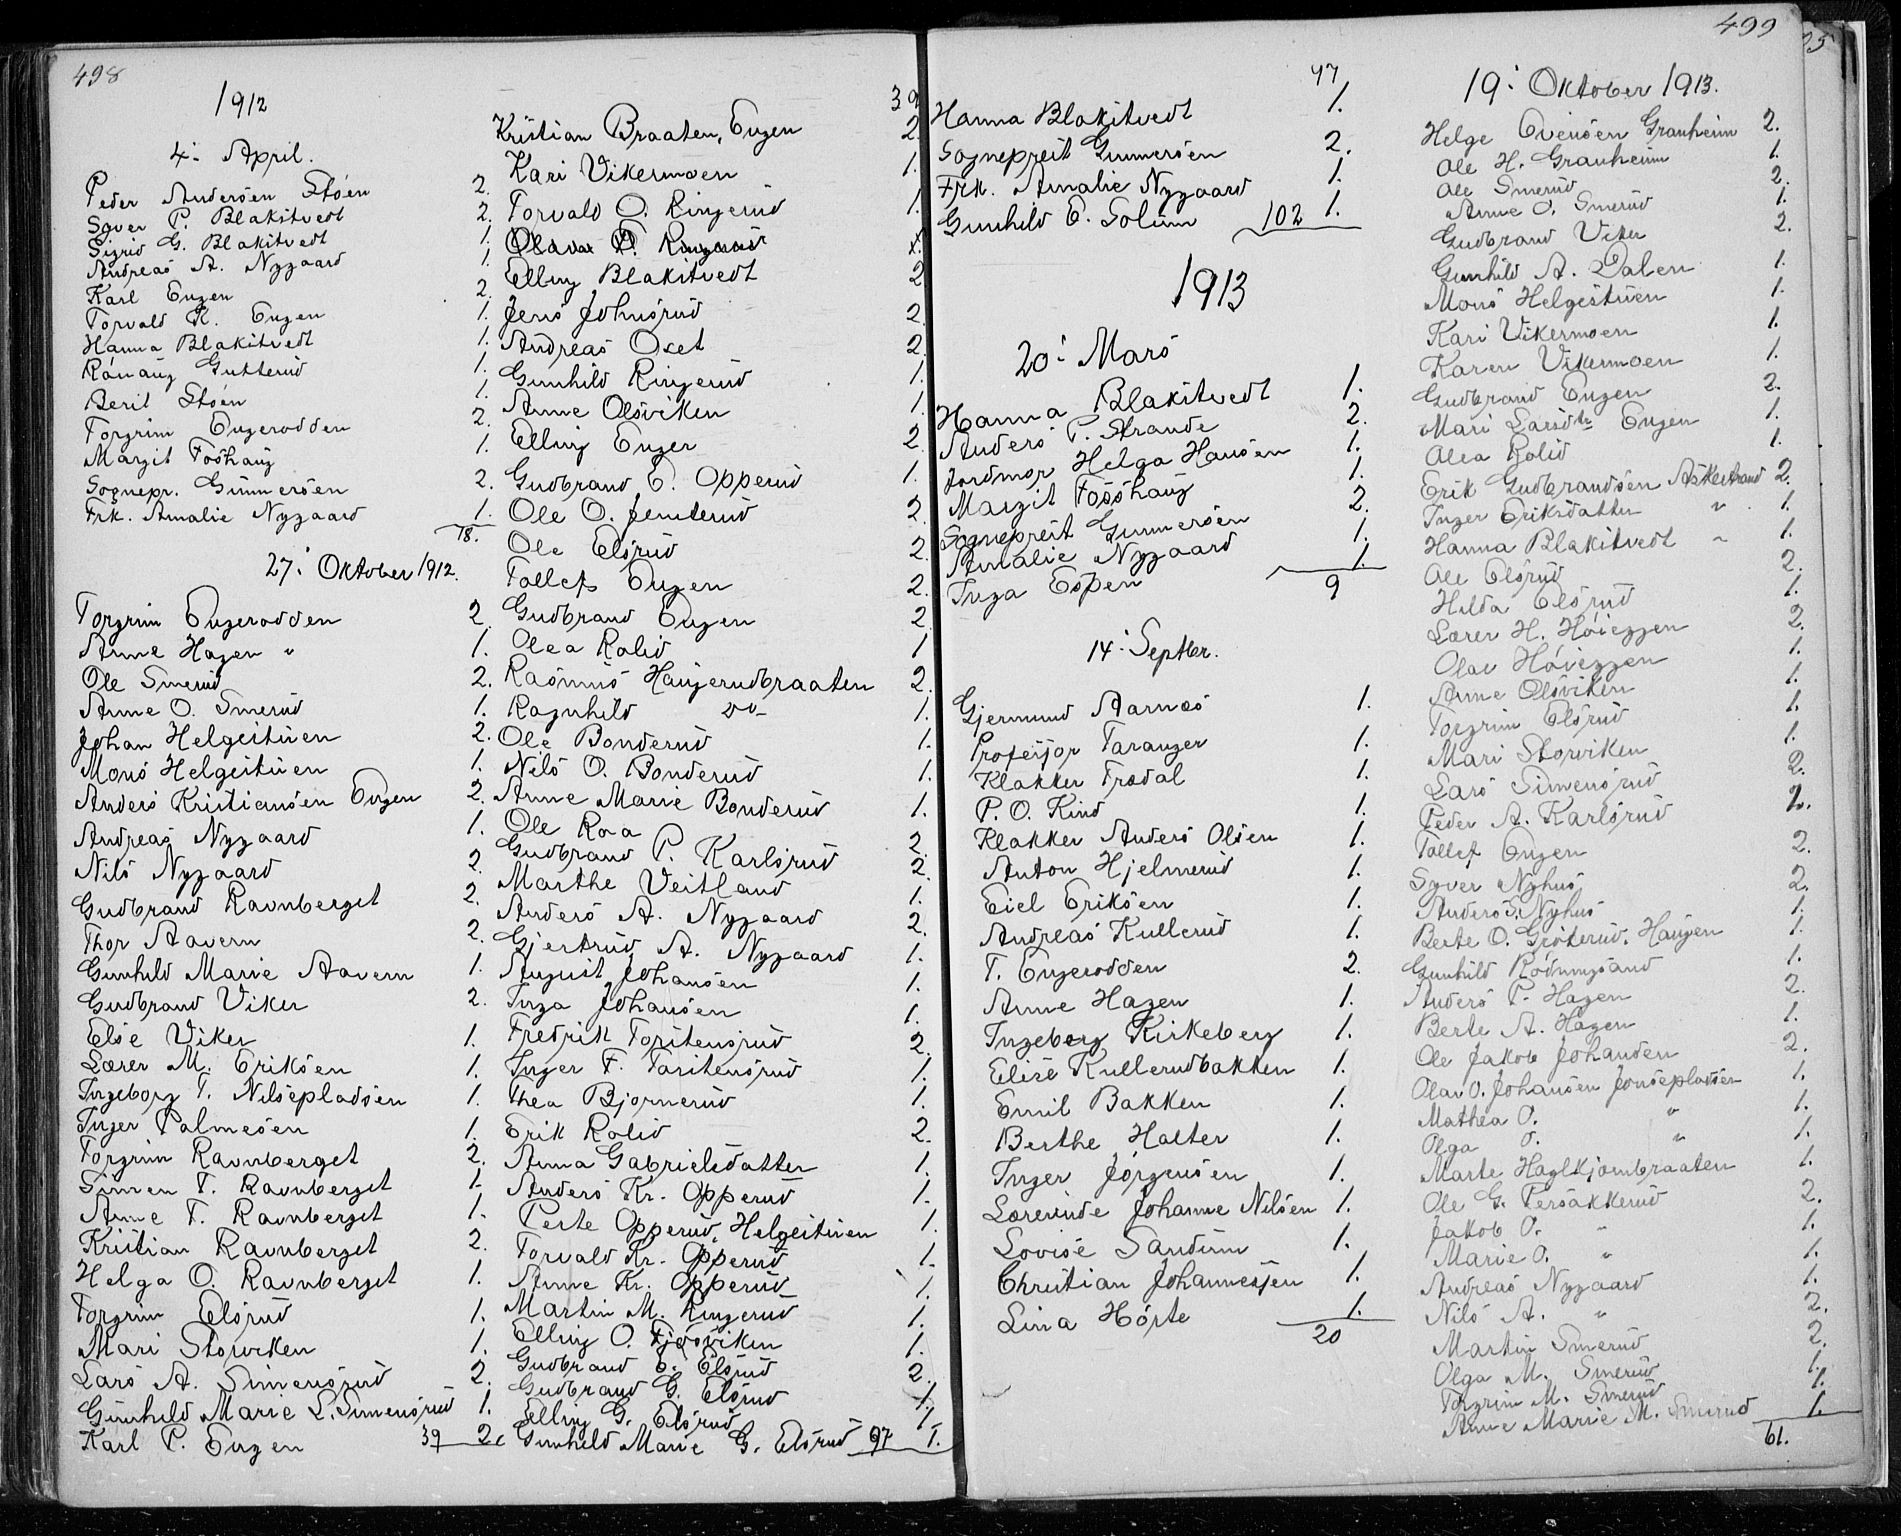 498
1912
4. April.
Peder Andersen Støen 2.
Syver P. Blakstvedt 2.
Sigrid G. Blakstvedt 1.
Andreas A. Nygaard 1.
Karl Engen 2.
Torvald K. Engen 1.
Hanna Blakstvedt 1.
Gutterud 1.
Berit Støen 1.
Torgrim Engerodden 2.
Margit Fosshaug 1.
Sognepr. Gunnersen 2.
Frk. Amalie Nygaard 1.
18.
27. Oktober 1912.
Torgrim Engerodden 2
Anne Hagen " 1.
Ole Smerud 2.
Anne O. Smerud 1.
Johan Helgestuen 2.
Mons Helgestuen 1.
Anders Kristiansen Engen 2.
Andreas Nygaard 1.
Nils Nygaard 2.
Gudbrand Ravnberget 2.
Thor Aavern 2.
Gunhild Marie Aavern 1.
Gudbrand Viker 2.
Else Viker 1.
Lærer M. Eriksen 1.
Ingeborg T. Nilsepladsen 1.
Inger Palmesen 1.
Torgrim Ravnberget 2.
Simen T. Ravnberget 1.
Anne T. Ravnberget 1.
Kristian Ravnberget 2.
Helga O. Ravnberget 1.
Torgrim Elsrud 1.
Mari Storviken 1.
Lars A. Simensrud 2.
Gunhild Marie L. Simensrud 1.
Karl P. Engen 39 2.
39
Kristian Braaten, Engen 2.
Kari Vikermoen 1.
Torvald O. Ringerud 1.
Elling Blakstvedt 2
Jens Johnsrud 2.
Andreas Oset 2.
Gunhild Ringerud 1.
Anne Olsviken 1.
Elling Enger 2
Gudbrand E. Opperud 1.
Ole O. Jemterud 2.
Ole Elsrud 2.
Tollef Engen 2.
Gudbrand Engen 2
Olea Rolid 1
Rasmus Haugerudbraaten 2.
Ragnhild do 1.
Ole Bonderud 1.
Nils O. Bonderud 1.
Anne Marie Bonderud 1.
Ole Roa 2.
Gudbrand P. Karlsrud 2.
Marthe Veitland 1.
Anders A. Nygaard 2.
Gjertrud A. Nygaard 1.
August Johansen 1.
Inga Johansen 1.
Fredrik Torstensrud 2.
Inger F. Torstensrud 1.
Thea Bjørnerud 1.
Erik Rolid 2.
Anna Gabrielsdatter 1.
Anders Kr. Opperud 1.
Opperud, Helgestuen 1.
Torvald Kr. Opperud 1.
Anne Kr. Opperud 1.
Martin M. Ringerud 1.
Elling O. Fjøsviken 1.
Gudbrand E. Elsrud 2.
Gudbrand G. Elsrud 1.
Elling G. Elsrud 1.
Gunhild Marie G. Elsrud 97 1.
499
97
Hanna Blakstvedt 1.
Sogneprest Gunnersen 2.
Frk. Amalie Nygaard 1.
Gunhild E. Solum 102 1.
1913
20. Mars
Hanna Blakstvedt 1.
Anders P. Strande 2.
Jordmor Helga Hansen 1.
Margit Fosshaug 1.
Sogneprest Gunnersen 2.
Amalie Nygaard 1.
Inga Espen 1.
9
14. Septber.
Gjermund Aarnes 1.
Professor Taranger 1.
Klokker Trødal 1.
P. O. Kind 1.
Klokker Anders Olsen 1.
Anton Hjelmerud 1.
Eiel Eriksen 1.
Andreas Kullerud 1.
T. Engerodden 2.
Anne Hagen 1.
Ingeborg Kirkeberg 1.
Elise Kullerudbakken 1.
Emil Bakken 1.
Berthe Halter 1.
Inger Jørgensen 1.
Lærerinde Johanne Nilsen 1.
Lovise Sandum 1.
Christian Johannessen 1.
Lina Hørte 1.
20
19. Oktober 1913.
Helge Evensen Granheim 2.
Ole H. Granheim 1.
Ole Smerud 2.
Anne O. Smerud 1.
Gudbrand Viker 2.
Gunhild A. Dalen 1.
Mons Helgestuen 1.
Kari Vikermoen 1.
Karen Vikermoen 1.
Gudbrand Engen 2.
Mari Larsdtr Engen 1.
Olea Rolid 1.
Erik Gudbrandsen Askestrand 2.
Inger Eriksdatter " 1.
Hanna Blakstvedt " 1.
Ole Elsrud 2.
Hilda Elsrud 1.
Lærer H. Høieggen 2.
Olav Høieggen 1.
Anne Olsviken 1.
Torgrim Elsrud 1.
Mari Storviken 1.
Lars Simensrud 2.
Peder A. Karlsrud 2.
Tollef Engen 2.
Syver Nyhus 2.
Anders S. Nyhus 1.
Berte O. Grøterud, Haugen 1.
Gunhild Rødningsand 1.
Anders P. Hagen 2.
Berte A. Hagen 1.
Ole Jakob Johansen 2.
Olav O. Johansen Jonsepladsen 1.
Mathea O. " 1.
Olga O. " 1.
Marte Haglkjærnbraaten 1.
Ole G. Persakkerud 2.
Jakob O. " 1.
Marie O. " 1.
Andreas Nygaard 1.
Nils A. " 2.
Martin Smerud 2.
Olga M. Smerud 1.
Torgrim M. Smerud 1.
Anne Marie M. Smerud 1.
61.